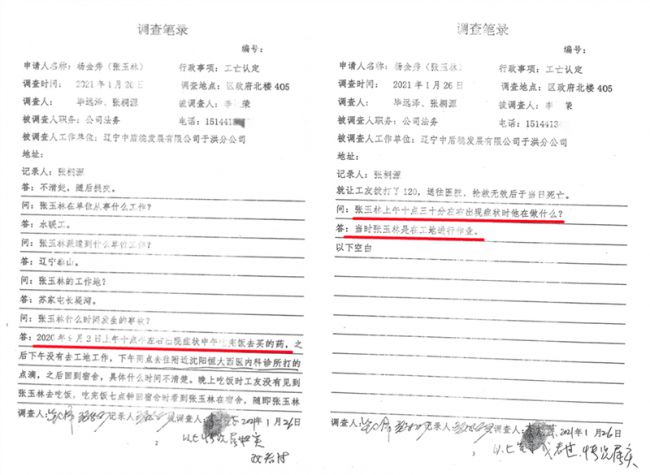 调查笔录
编号：
申请人名称：杨金秀（张玉林） 行政事项：工亡认定
调查时间： 2021年1月26日 调查地点：区政府北楼 405
调查人： 毕远泽、张桐源 被调查人：李 荣
被调查人职务：公司法务 电话：1514413
被调查人工作单位：辽宁中盾德发展有限公司于洪分公司
地址：
记录人：张桐源
答：不清楚，随后提交。
问：张玉林在单位从事什么工作？
答：水暖工。
问：张玉林派遣到什么单位工作？
答：辽宁泰山。
问：张玉林的工作地？
答：苏家屯长堤湾。
问：张玉林什么时间发生的事故？
答：2020年 月2日上午十点 左右出现症状中午 完饭去买的药，之
后下午没有去工地工作，下午两点去往附近沈阳恒大西医内科诊所打的
点滴，之后回到宿舍，具体什么时间不清楚。晚上吃饭时工友没有见到
张玉林去吃饭，吃完饭七点钟回宿舍时看到张玉林在宿舍，随即张玉林
调查人： 记录人： 被调查人： 2021年1月26日
2
以上情况属实
调查笔录
编号：
申请人名称：杨金秀（张玉林） 行政事项：工亡认定
调查时间： 2021年1月26日 调查地点：区政府北楼 405
调查人： 毕远泽、张桐源 被调查人：李 荣
被调查人职务：公司法务 电话：1514413
被调查人工作单位：辽宁中盾德发展有限公司于洪分公司
地址：
记录人：张桐源
就让工友拨打了 120，送往医院，抢救无效后于当日死亡。
问：张玉林上午十点三十分左右出现症状时他在做什么？
答：当时张玉林是在工地进行作业。
以下空白
调查人： 记录人： 被调查人： 2021年1月26日
以上 情况属实